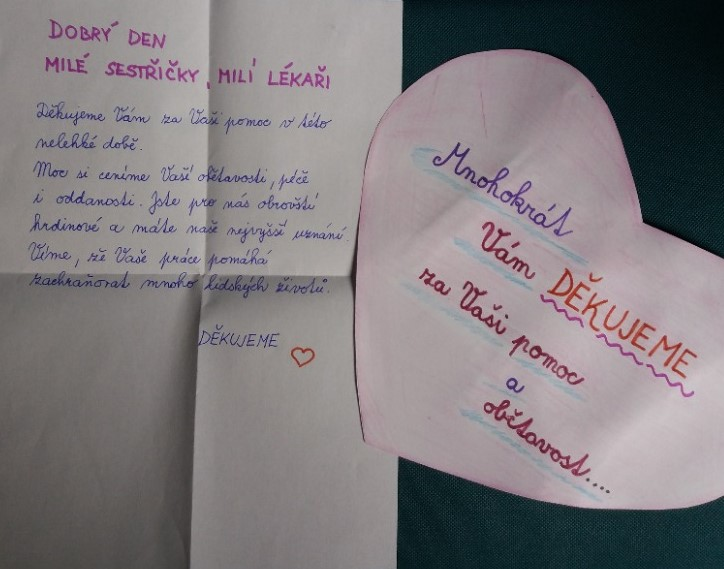 DOBRÝ DEN
MILÉ SESTŘIČKY, MILÍ LÉKAŘI
Děkujeme Vám za Vaši pomoc v této
nelehké době.
Moc si ceníme Vaší obětavosti, péče
i oddanosti. Jste pro nás obrovští
hrdinové a máte naše nejvyšší uznání.
Víme, že Vaše práce pomáhá
zachraňovat mnoho lidských životů.
DĚKUJEME
Mnohokrát
Vám DĚKUJEME
za Vaši pomoc
a
obětavost....